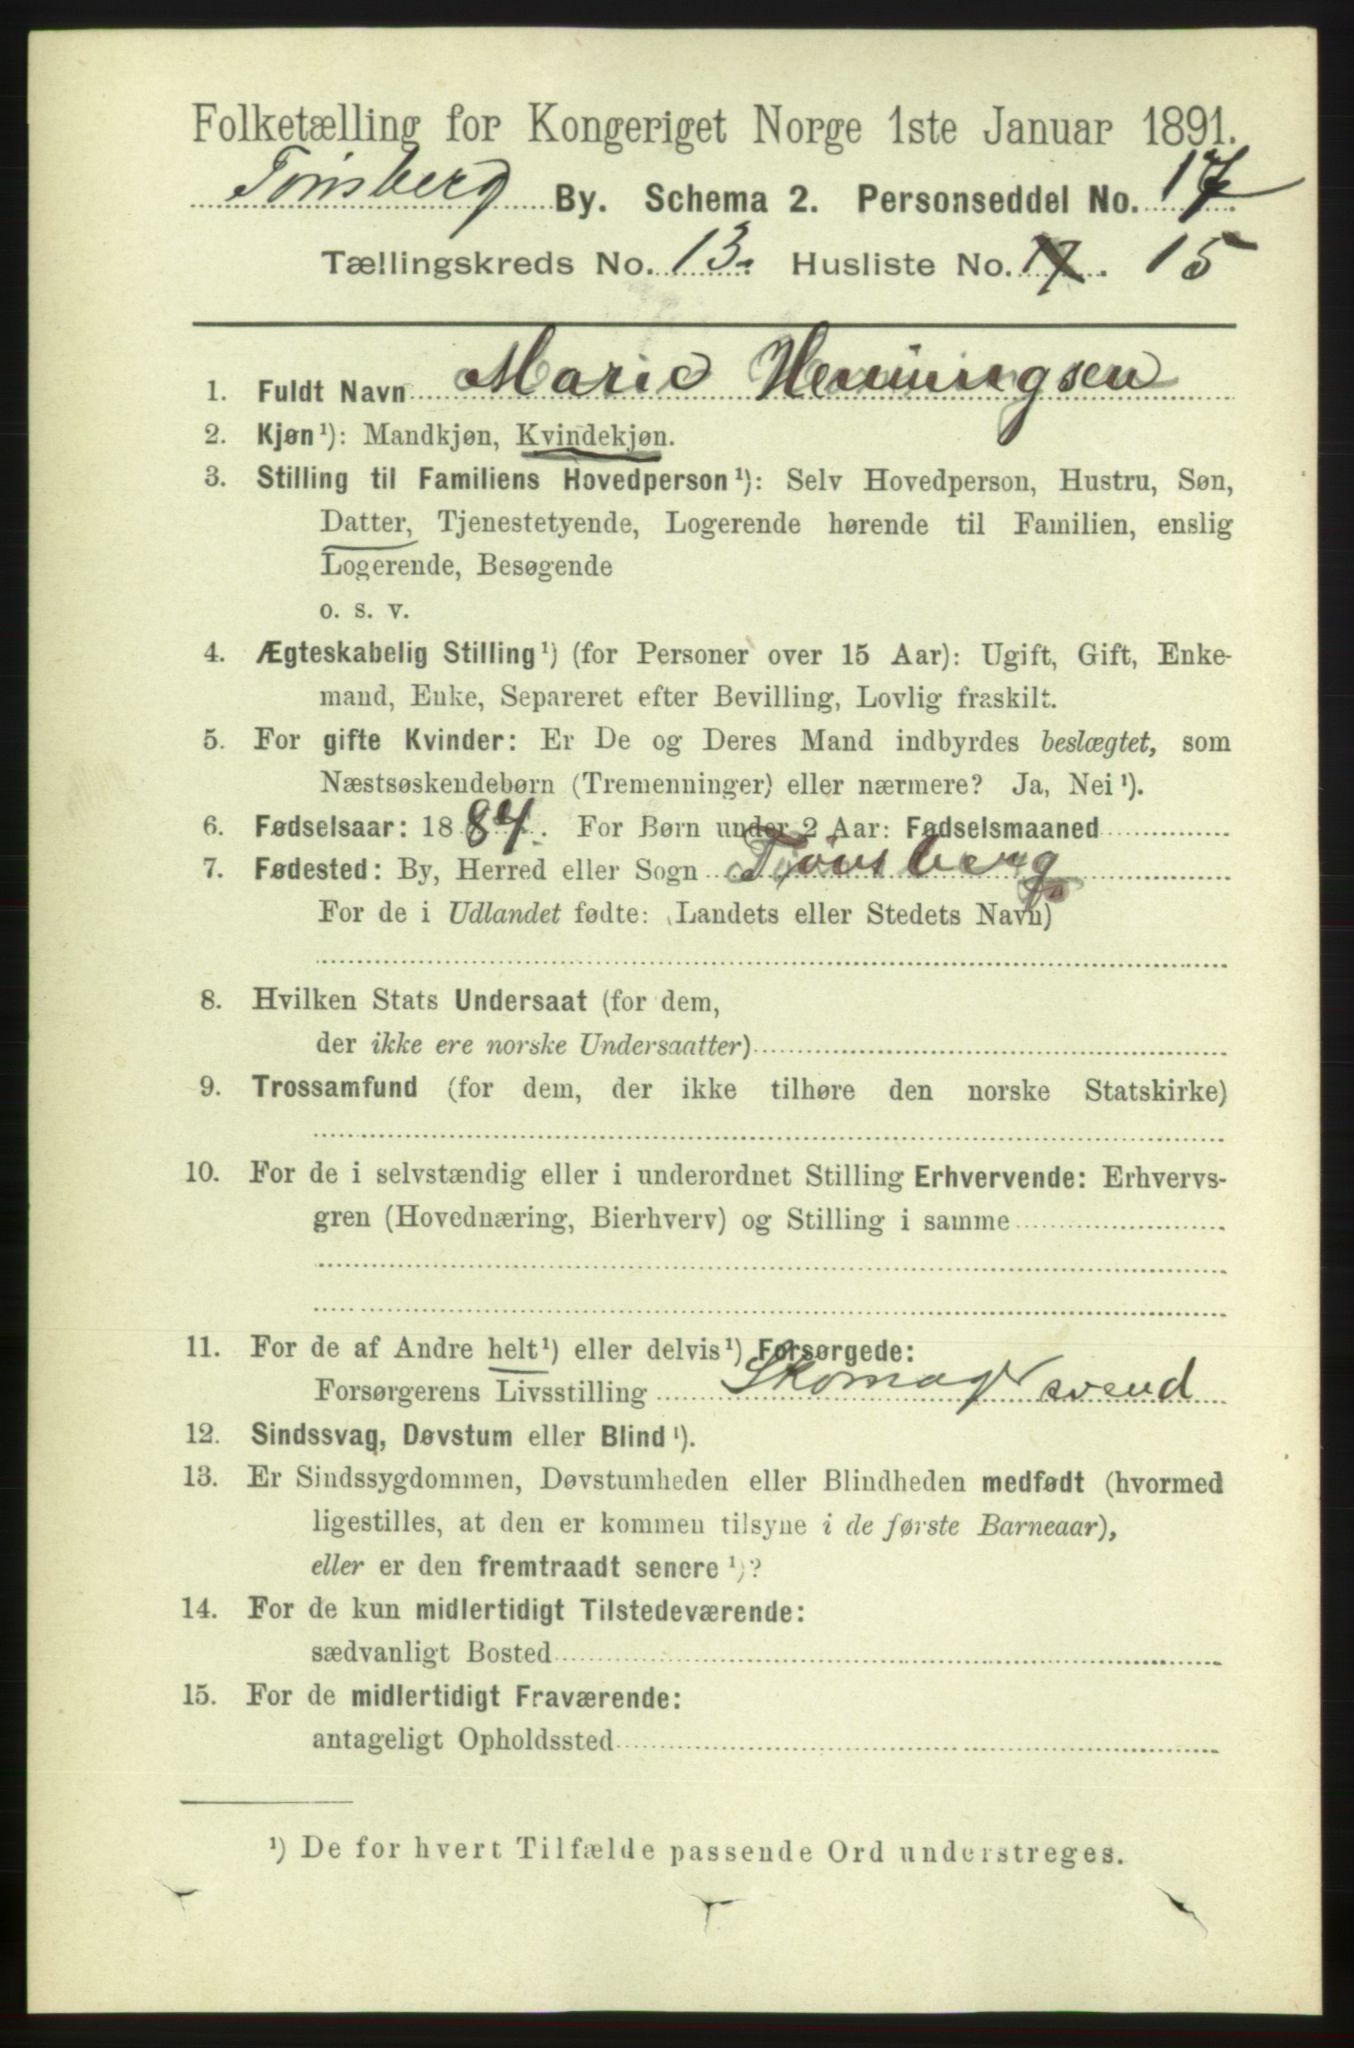 Folketælling for Kongeriget Norge 1ste Januar 1891.
Tønsberg By. Schema 2. Personseddel No. 17
Tællingskreds No. 13. Husliste No. 17. 15
1. Fuldt Navn Marie Henningsen
2. Kjøn¹): Mandkjøn, Kvindekjøn.
3. Stilling til Familiens Hovedperson¹): Selv Hovedperson, Hustru, Søn,
Datter, Tjenestetyende, Logerende hørende til Familien, enslig
Logerende, Besøgende
o. s. v.
4. Ægteskabelig Stilling¹) (for Personer over 15 Aar): Ugift, Gift, Enke-
mand, Enke, Separeret efter Bevilling, Lovlig fraskilt.
5. For gifte Kvinder: Er De og Deres Mand indbyrdes beslægtet, som
Næstsøskendebørn (Tremenninger) eller nærmere? Ja, Nei¹).
6. Fødselsaar: 1884. For Børn under 2 Aar: Fødselsmaaned
7. Fødested: By, Herred eller Sogn Tønsberg
For de i Udlandet fødte: (Landets eller Stedets Navn)
8. Hvilken Stats Undersaat (for dem,
der ikke ere norske Undersaatter)
9. Trossamfund (for dem, der ikke tilhøre den norske Statskirke)
10. For de i selvstændig eller i underordnet Stilling Erhvervende: Erhvervs-
gren (Hovednæring, Bierhverv) og Stilling i samme
11. For de af Andre helt¹) eller delvis¹) Forsørgede:
Forsørgerens Livsstilling Skomagersvend
12. Sindssvag, Døvstum eller Blind¹).
13. Er Sindssygdommen, Døvstumheden eller Blindheden medfødt (hvormed
ligestilles, at den er kommen tilsyne i de første Barneaar),
eller er den fremtraadt senere¹)?
14. For de kun midlertidigt Tilstedeværende:
sædvanligt Bosted
15. For de midlertidigt Fraværende:
antageligt Opholdssted
¹) De for hvert Tilfælde passende Ord understreges.